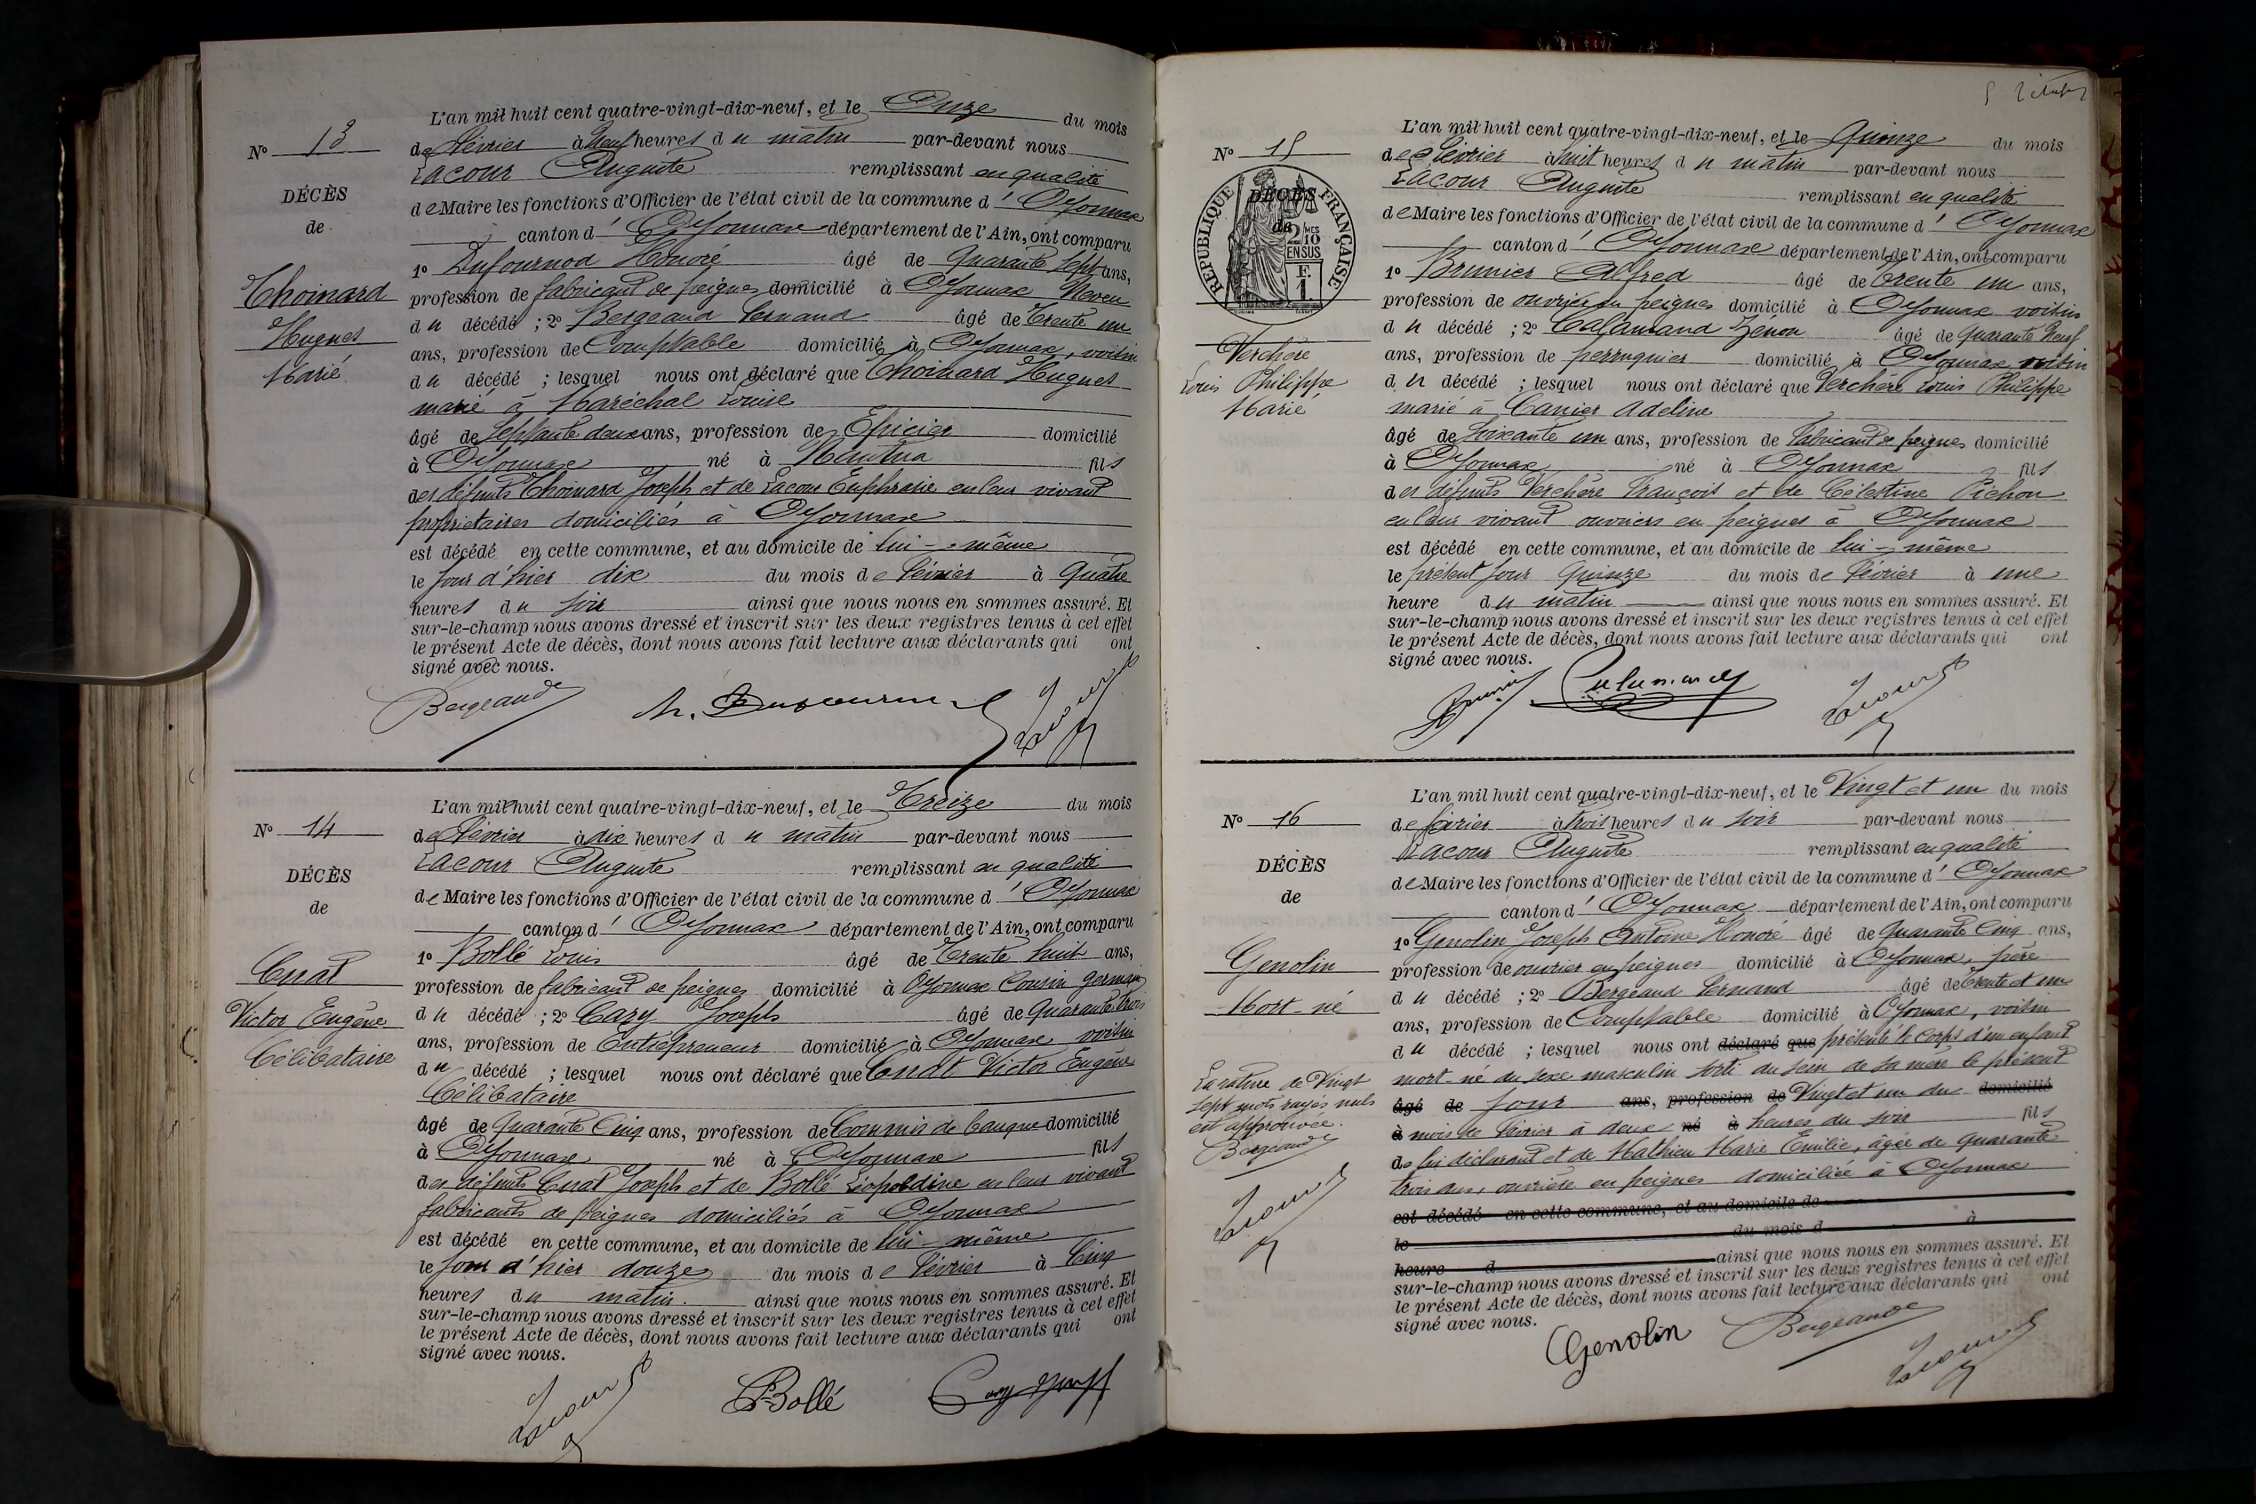 N° 13
DÉCÈS
de
Thoinard
Hugues
Marié
L'an mil huit cent quatre-vingt-dix-neuf, et le Onze du mois
de Février à Neuf heures du matin par-devant nous
Lacour Auguste remplissant en qualité
de Maire les fonctions d'Officier de l'état civil de la commune d' Oyonnax
canton d' Oyonnax département de l'Ain, ont comparu
1° Dufournod Honoré âgé de Quarante sept ans,
profession de fabricant de peignes domicilié à Oyonnax Neveu
du décédé ; 2° Bergeaud Fernand âgé de Trente un
ans, profession de Comptable domicilié à Oyonnax, voisin
du décédé ; lesquel nous ont déclaré que Thoinard Hugues
marié à Maréchal Louise
âgé de Septante deux ans, profession de Epicier domicilié
à Oyonnax né à fils
des défunts Thoinard Joseph et de Lacour Euphrasie en leur vivant
propriétaires domiciliés à Oyonnax
est décédé en cette commune, et au domicile de lui-même
le jour d'hier dix du mois de Février à Quatre
heures du soir ainsi que nous nous en sommes assuré. Et
sur-le-champ nous avons dressé et inscrit sur les deux registres tenus à cet effet
le présent Acte de décès, dont nous avons fait lecture aux déclarants qui ont
signé avec nous.
Bergeaud Lacour
N° 14
DÉCÈS
de
Cusat
Victor Eugène
Célibataire
L'an mil huit cent quatre-vingt-dix-neuf, et le Treize du mois
de Février à dix heures du matin par-devant nous
Lacour Auguste remplissant en qualité
de Maire les fonctions d'Officier de l'état civil de la commune d' Oyonnax
canton d' Oyonnax département de l'Ain, ont comparu
1° Bollé Louis âgé de Trente huit ans,
profession de fabricant de peignes domicilié à Oyonnax Cousin germain
du décédé ; 2° Cary Joseph âgé de Quarante trois
ans, profession de Entrepreneur domicilié à Oyonnax voisin
du décédé ; lesquel nous ont déclaré que Cusat Victor Eugène
Célibataire
âgé de Quarante Cinq ans, profession de Commis de banque domicilié
à Oyonnax né à Oyonnax fils
des défunts Cusat Joseph et de Bollé Léopoldine en leur vivant
fabricants de peignes domiciliés à Oyonnax
est décédé en cette commune, et au domicile de lui-même
le jour d'hier douze du mois de Février à Cinq
heures du matin. ainsi que nous nous en sommes assuré. Et
sur-le-champ nous avons dressé et inscrit sur les deux registres tenus à cet effet
le présent Acte de décès, dont nous avons fait lecture aux déclarants qui ont
signé avec nous.
Lacour Bollé Cary Joseph
N° 15
DÉCÈS
de
RÉPUBLIQUE FRANÇAISE
2/10 MES
EN SUS
F. 1.
Verchère
Louis Philippe
Marié
L'an mil huit cent quatre-vingt-dix-neuf, et le Quinze du mois
de Février à huit heures du matin par-devant nous
Lacour Auguste remplissant en qualité
de Maire les fonctions d'Officier de l'état civil de la commune d' Oyonnax
canton d' Oyonnax département de l'Ain, ont comparu
1° Brunier Alfred âgé de Trente un ans,
profession de ouvrier en peignes domicilié à Oyonnax voisin
du décédé ; 2° Calamand Zénon âgé de Quarante Neuf
ans, profession de perruquier domicilié à Oyonnax voisin
du décédé ; lesquel nous ont déclaré que Verchère Louis Philippe
marié à Canier Adeline
âgé de Soixante un ans, profession de Fabricant de peignes domicilié
à Oyonnax né à Oyonnax fils
des défunts Verchère François et de Célestine Pichon
en leur vivant ouvriers en peignes à Oyonnax
est décédé en cette commune, et au domicile de lui-même
le présent jour Quinze du mois de Février à une
heure du matin ainsi que nous nous en sommes assuré. Et
sur-le-champ nous avons dressé et inscrit sur les deux registres tenus à cet effet
le présent Acte de décès, dont nous avons fait lecture aux déclarants qui ont
signé avec nous.
Brunier Calamand Lacour
N° 16
DÉCÈS
de
Genolin
Mort-né
La rature de Vingt
sept mots rayés nuls
est approuvée.
Bergeaud
Lacour
L'an mil huit cent quatre-vingt-dix-neuf, et le Vingt et un du mois
de février à trois heures du soir par-devant nous
Lacour Auguste remplissant en qualité
de Maire les fonctions d'Officier de l'état civil de la commune d' Oyonnax
canton d' Oyonnax département de l'Ain, ont comparu
1° Genolin Joseph Antoine Honoré âgé de Quarante Cinq ans,
profession de ouvrier en peignes domicilié à Oyonnax, père
du décédé ; 2° Bergeaud Fernand âgé de Trente et un
ans, profession de Comptable domicilié à Oyonnax, voisin
du décédé ; lesquel nous ont déclaré que présenté le corps d'un enfant
mort-né du sexe masculin sorti du sein de sa mère le présent
âgé de jour ans, profession de Vingt et un du domicilié
à mois de Février à deux né à heures du soir fils
de lui déclarant et de Mathieu Marie Emilie, âgée de quarante
trois ans, ouvrière en peignes domiciliée à Oyonnax
est décédé en cette commune, et au domicile de
le du mois d à
heure d ainsi que nous nous en sommes assuré. Et
sur-le-champ nous avons dressé et inscrit sur les deux registres tenus à cet effet
le présent Acte de décès, dont nous avons fait lecture aux déclarants qui ont
signé avec nous.
Genolin Bergeaud Lacour